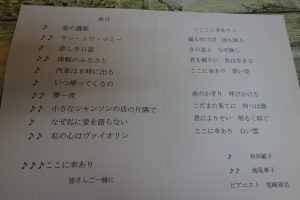 曲目
♪ 愛の讃歌
♪♪ サン・トワ・マミー
♪ 悲しき口笛
♪♪ 津軽のふるさと
♪ 汽車は8時に出る
♪ いつ帰ってくるの
♪♪ 夢一夜
♪♪ 小さなシャンソンの店の片隅で
♪ なぜ私に愛を語らない
♪♪ 私の心はヴァイオリン
♪♪♪ここに幸あり
皆さんご一緒に
<ここに幸あり>
嵐も吹けば 雨も降る
女の道よ なぜ険し
君を頼りに 私は生きる
ここに幸あり 青い空
命のかぎり 呼びかける
こだまの果てに 待つは誰
君によりそい 明るく仰ぐ
ここに幸あり 白い雲
♪ 和田敏子
♪♪
ピアニスト